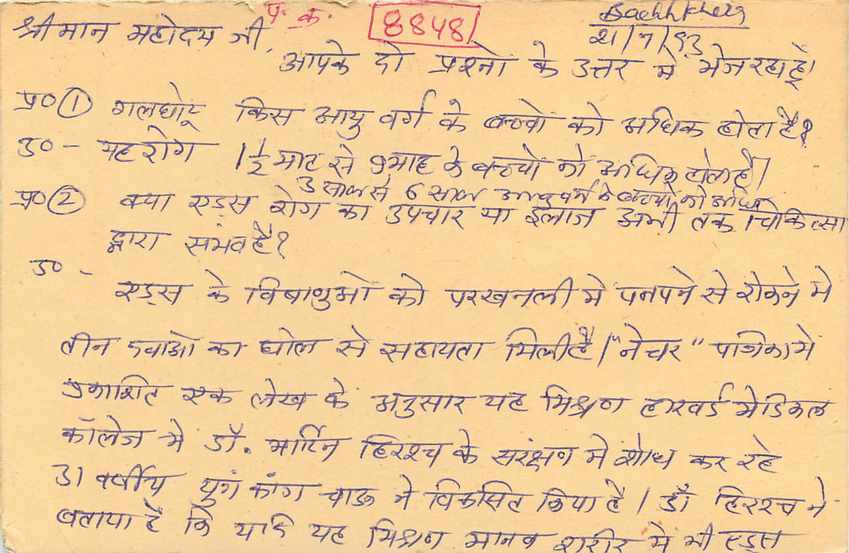 प. क. 8848 Bachhkhera
21/7/93
श्रीमान महोदय जी,
आपके दो प्रश्नो के उत्तर मे भेज रहा हूं।
प्र० ① गलघोंटू किस आयु वर्ग के बच्चों को अधिक होता है?
उ० - यह रोग 1½ माह से 9 माह के बच्चों को अधिक होता है।
3 साल से 6 साल आयु वर्ग के बच्चों को अधिक
प्र० ② क्या एड्स रोग का उपचार या ईलाज अभी तक चिकित्सा
द्वारा संभव है?
उ० -
एड्स के विषाणुओ को परखनली मे पनपने से रोकने मे
तीन दवाओ का घोल से सहायता मिली है। "नेचर" पत्रिका मे
प्रकाशित एक लेख के अनुसार यह मिश्रण हारवर्ड मेडिकल
कॉलेज मे डॉ. मार्टिन हिरश्च के सरंक्षण मे शोध कर रहे
31 वर्षीय युगं कांग चाऊ ने विकसित किया है। डॉ हिरश्च ने
बताया है कि यदि यह मिश्रण मानव शरीर मे भी एड्स